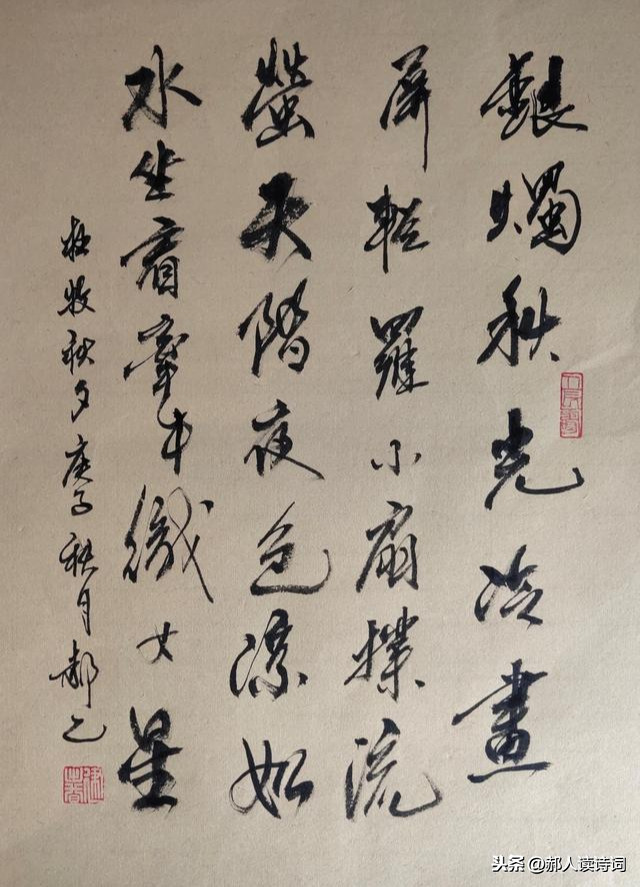 銀燭秋光冷畫
屏輕羅小扇撲流
螢天階夜色涼如
水坐看牽牛織女星
杜牧秋夕庚子秋月郝乙
头条 @郝人读诗词